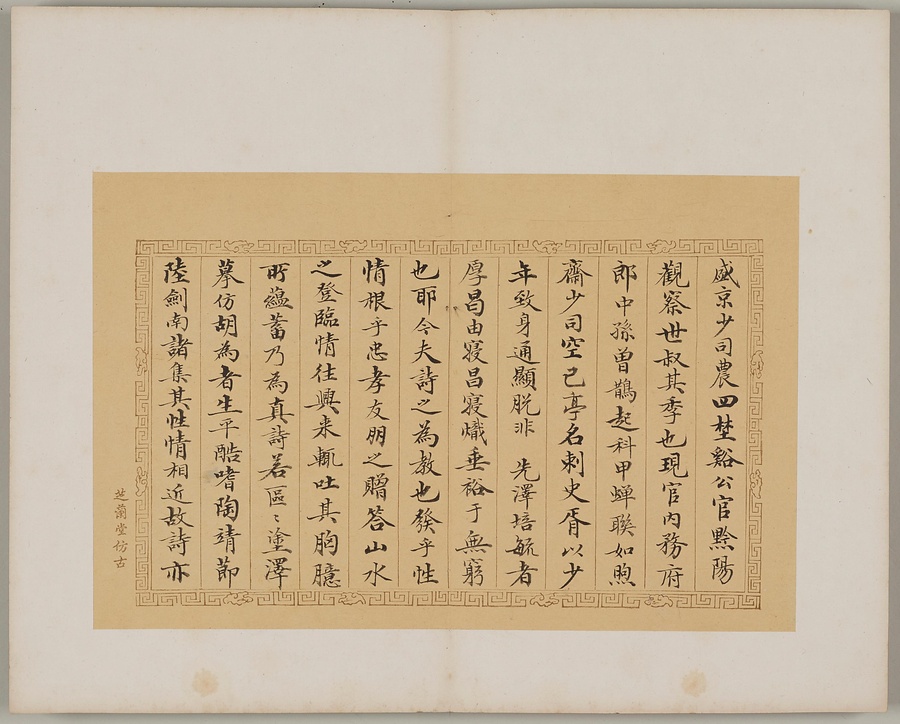 盛京少司農四埜谿公官黔陽
觀察世叔其季也現官内務府
郎中孫曾鵲起科甲蟬聯如煦
齋少司空己亭名刺史胥以少
年致身通顯脱非 先澤培毓者
厚昌由寖昌寖熾垂裕于無窮
也耶今夫詩之為教也發乎性
情根乎忠孝友朋之贈答山水
之登臨情往興来輒吐其胸臆
所蘊蓄乃為真詩若區〻塗澤
摹仿胡為者生平酷嗜陶靖節
陸劍南諸集其性情相近故詩亦
芝蘭堂仿古